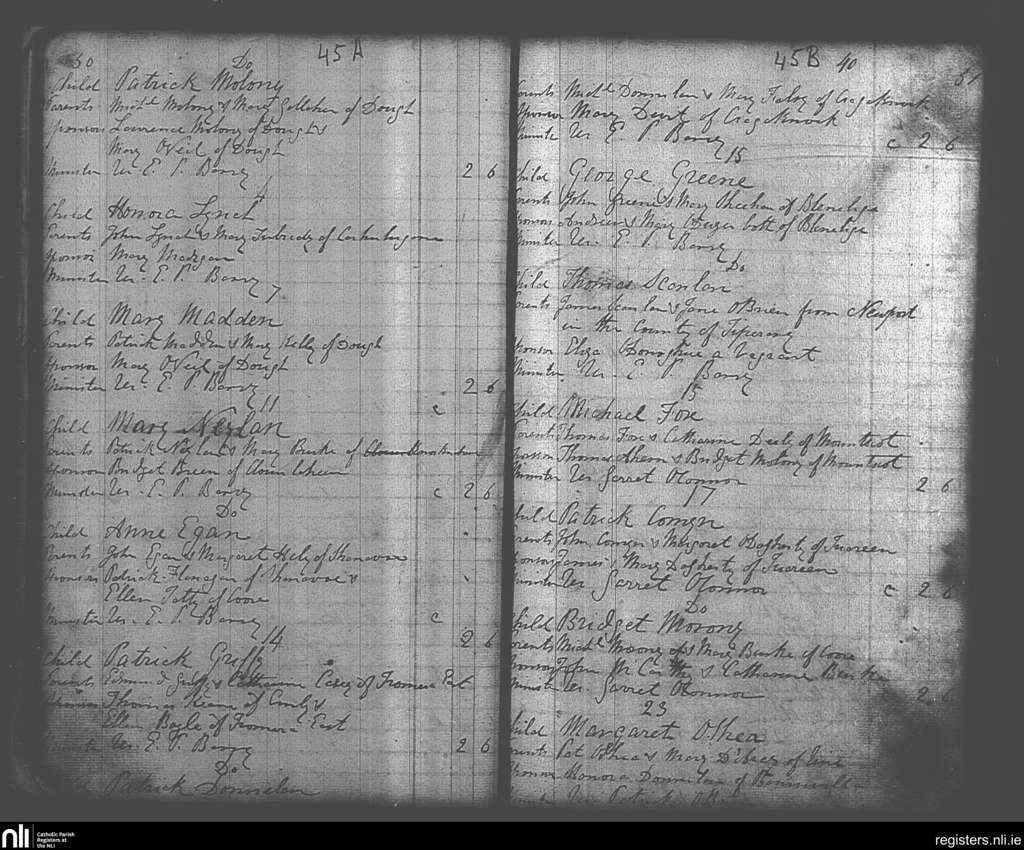 30 Do 45A
Child Patrick Molony
Parents Michl Molony & Mary Gallahan of Dough
Sponsors Lawrence Molony of Dough &
Mary O'Neil of Dough
Minister Ur. E. P. Barry 2 6
Child Honora Lynch
Parents John Lynch & Mary Tubridy of
Sponsor Mary Madigan
Minister Ur. E. P. Barry
7
Child Mary Madden
Parents Patrick Madden & Mary Kelly of Dough
Sponsor Mary O'Neil of Dough
Minister Ur. E. P. Barry 2 6
11 c
Child Mary Neylan
Parents Patrick Neylan & Mary Burke of
Sponsor Bridget Breen of
Minister Ur. E. P. Barry c 2 6
Do
Child Anne Egan
Parents John Egan & Margaret Hely of Shanavoe
Sponsors Patrick Flanagan of Shanavoe &
Ellen Talty of Coore
Minister Ur. E. P. Barry c
14 2 6
Child Patrick Griffy
Parents Edmund Griffy & Catherine Carey of Fromora East
Sponsors Thomas Keane of Emly &
Ellen Boyle of Fromora East
Minister Ur. E. P. Barry 2 6
Do
Child Patrick Donnelan
45B 40 31
Parents Michl Donnelan & Mary Falvy of Cragaknock
Sponsor Mary Devit of Cragaknock
Minister Ur. E. P. Barry c 2 6
15
Child George Greene
Parents John Greene & Mary Sheehan of Blenaliga
Sponsors Andrew & Mary Dwyer both of Blenaliga
Minister Ur. E. P. Barry
Do
Child Thomas Scanlan
Parents James Scanlan & Jane O'Brien from Newport
in the County of Tiperary
Sponsor Eliza O'Donoghue a Vagrant
Minister Ur. E. P. Barry
15
Child Michael Fox
Parents Thomas Fox & Catharine Deely of Mountrot
Sponsors Thomas Ahern & Bridget Molony of Mountrot
Minister Ur Garret OConnor 2 6
17
Child Patrick Comyn
Parents John Comyn & Margaret ODogherty of Tuareen
Sponsors James & Mary Dogherty of Tuareen
Minister Ur. Garret OConnor c 2 6
Do
Child Bridget Morony
Parents Michl Morony & Mary Burke of Coore
Sponsors John McCarthy & Catharine Burke
Minister Ur. Garret OConnor 2 6
23
Child Margaret O'Shea
Parents Pat O'Shea & Mary of
Sponsor Honora Donnelan of
Minister Ur Patrick
nli Catholic Parish
Registers at
the NLI
registers.nli.ie